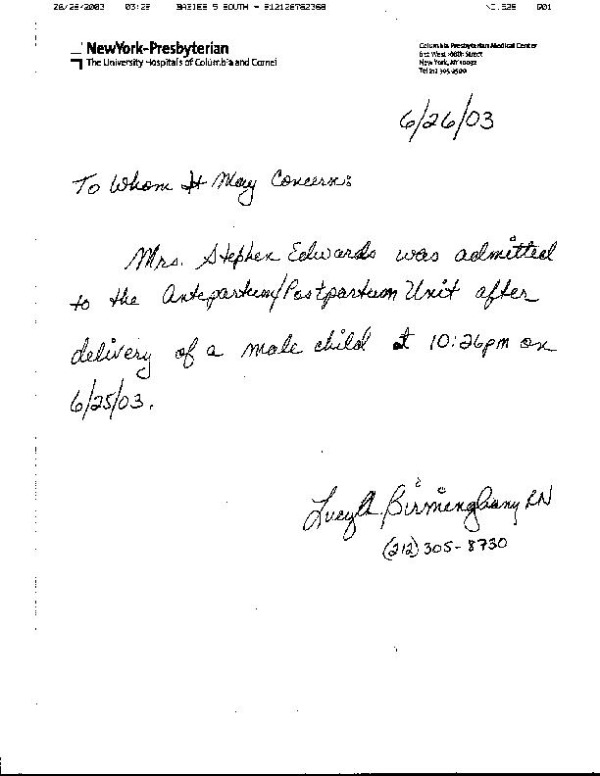 03:28 BABIES 5 SOUTH → 812126762368 P01
NewYork-Presbyterian
The University Hospitals of Columbia and Cornell
Columbia Presbyterian Medical Center
622 West 168th Street
New York, NY 10032
Tel 212 305-2500
6/26/03
To Whom It May Concern:
Mrs. Stephen Edwards was admitted
to the Antepartum/Postpartum Unit after
delivery of a male child at 10:26pm on
6/25/03.
Lucy A. Birmingham, RN
(212) 305-8730